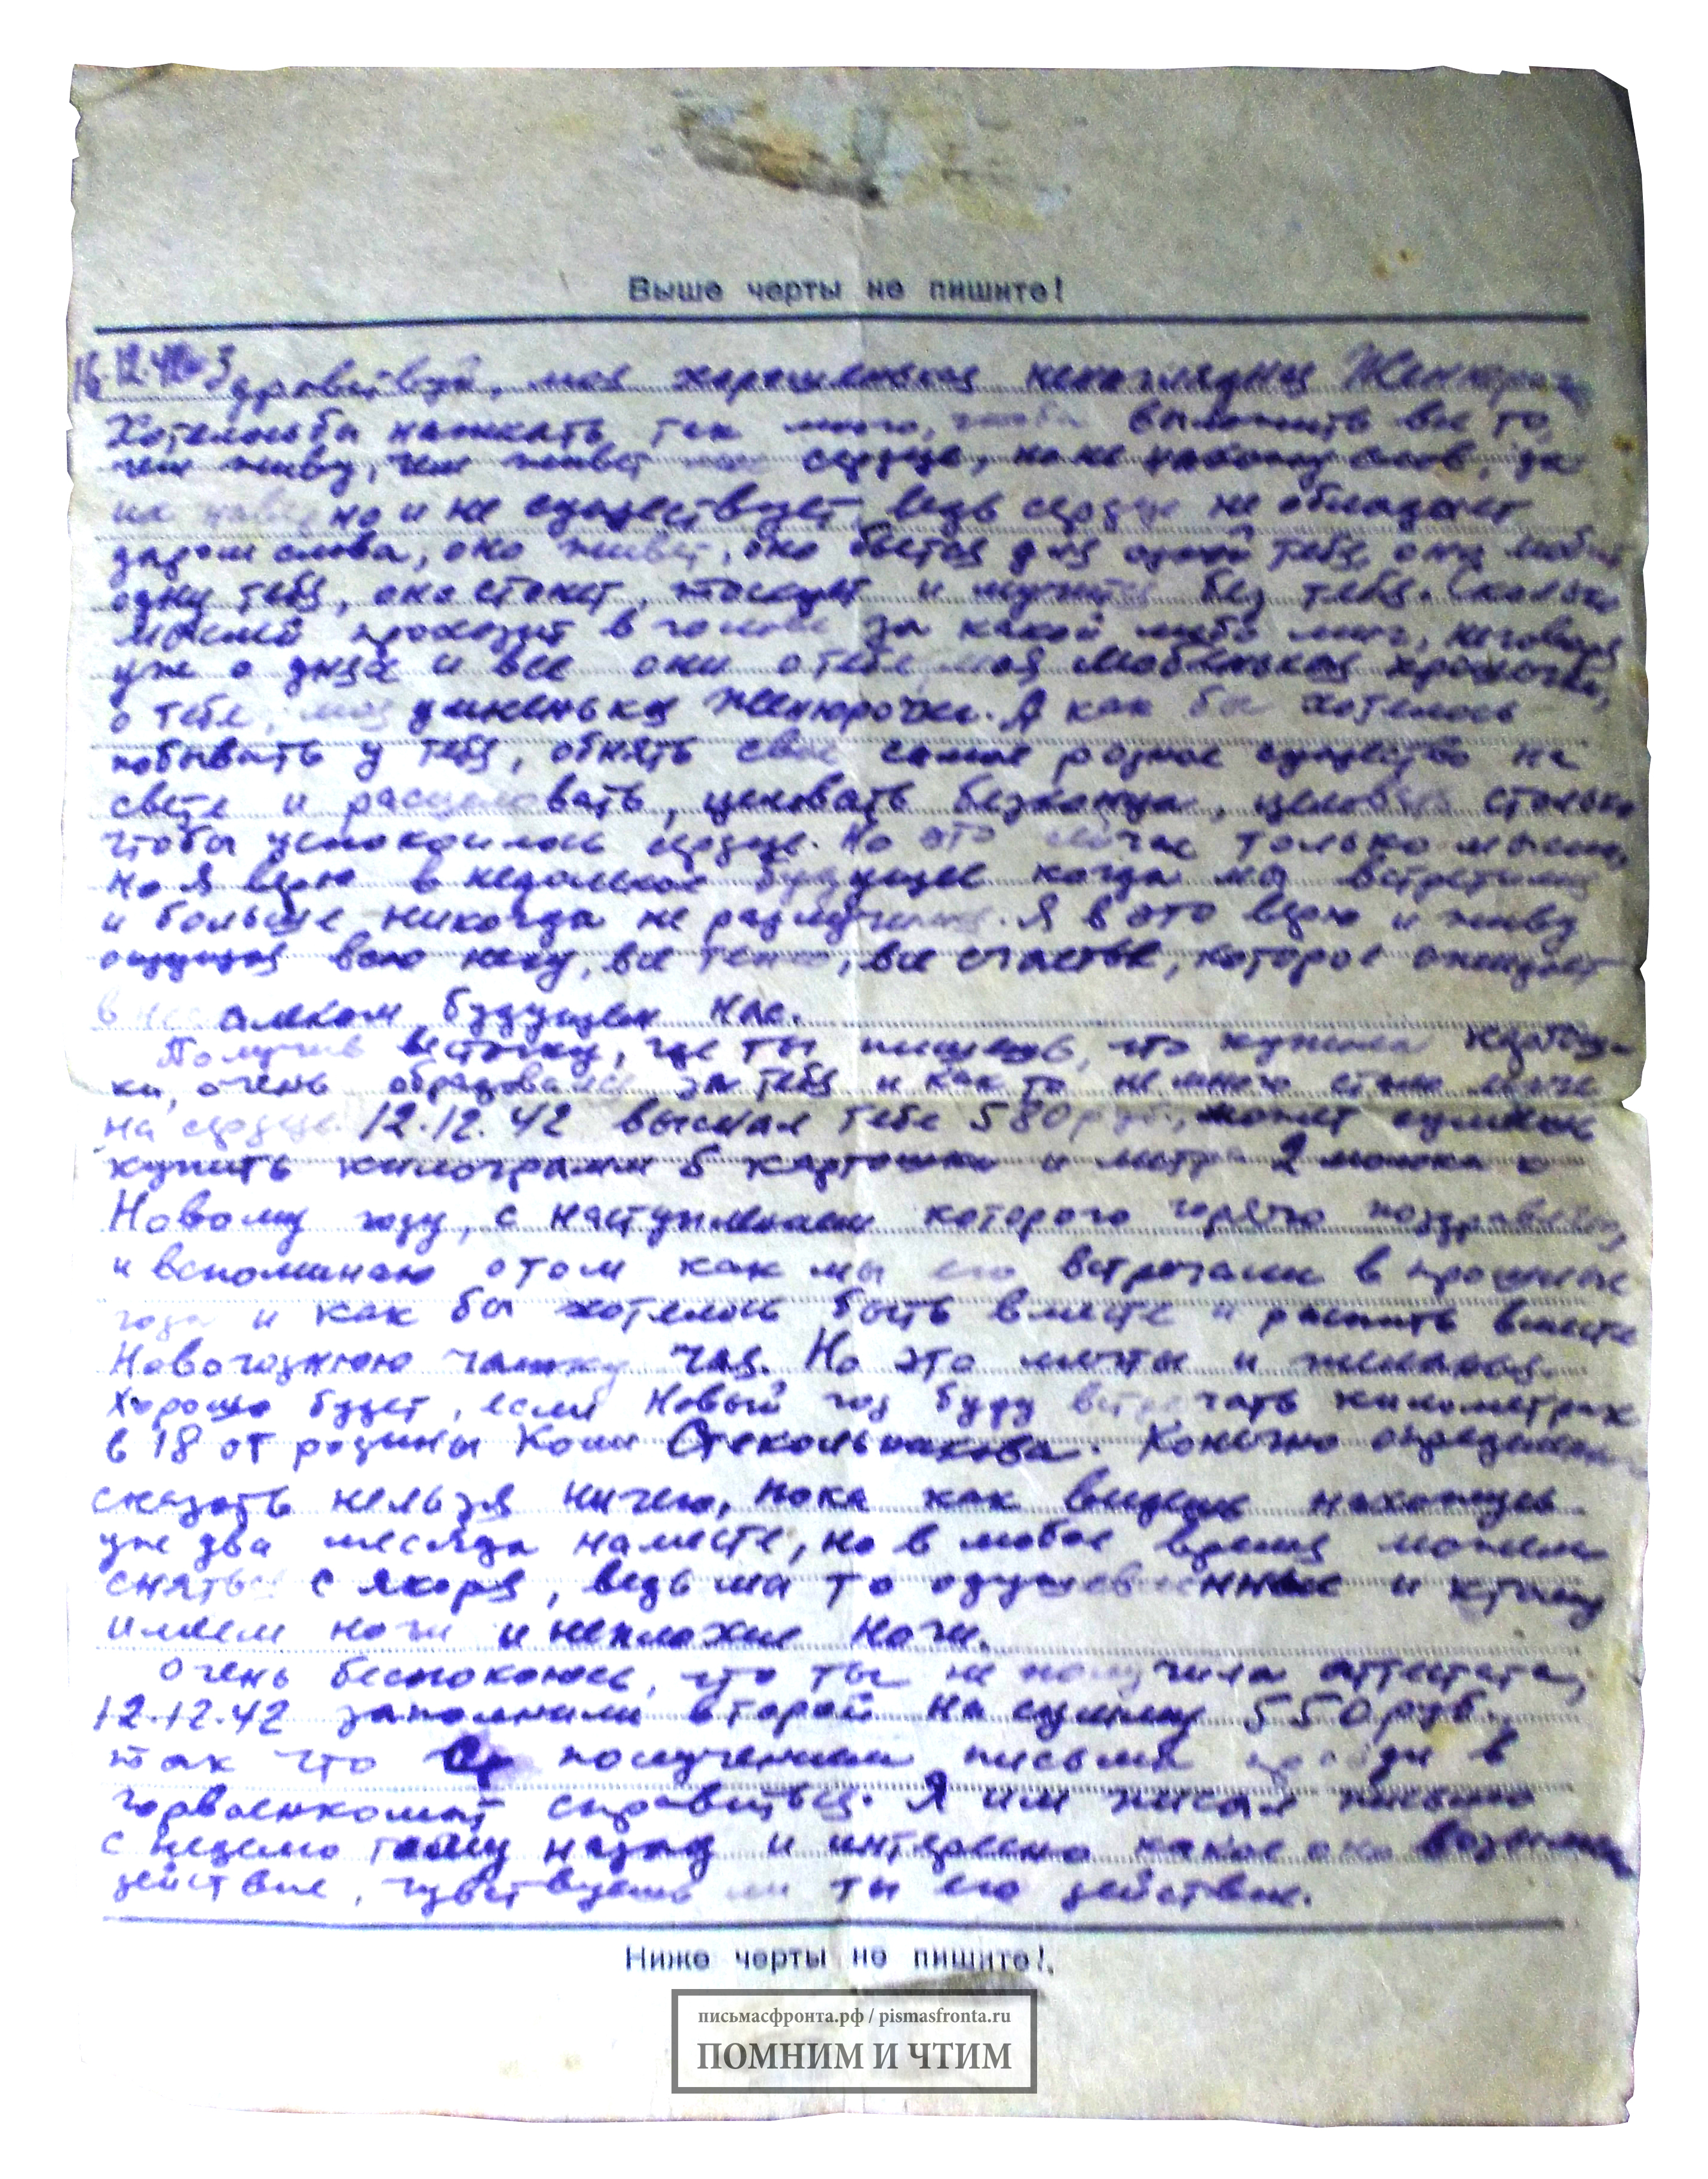 Выше черты не пишите!
16.12.42 Здравствуй, моя хорошенькая ненаглядная Женюрочка
Хотелось бы написать так много, чтобы выложить все то,
чем живу, чем живет мое сердце, но не нахожу слов, да
их наверно и не существует, ведь сердце не обладает
даром слова, оно живет, оно бьется для одной тебя, оно любит
одну тебя, оно стонет, тоскует и мучится без тебя. Сколько
мыслей проходит в голове за какой либо миг, не говоря
уже о днях и все они о тебе моя любенькая крошечка,
о тебе, моя умненькая Женюрочка. А как бы хотелось
побывать у тебя, обнять свое самое родное существо на
свете и расцеловать, целовать безконца, целовать столько
чтобы успокоилось сердце. Но это сейчас только мысли,
но я верю в недалекое будущее когда мы встретимся
и больше никогда не разлучимся. Я в это верю и живу
ощущая всю негу, все тепло, все счастье, которое ожидает
в недалеком будущем нас.
Получив весточку, где ты пишешь, что купила картош-
ки, очень обрадовался за тебя и как то немного стало легче
на сердце. 12.12.42 выслал тебе 580 руб., может сумеешь
купить килограмм 5 картошки и литра 2 молока к
Новому году, с наступлением которого горячо поздравляю,
и вспоминаю о том как мы его встречали в прошлые
года и как бы хотелось быть вместе и распить вместе
Новогоднюю чашку чая. Но это мечты и желанья.
Хорошо будет, если Новый год буду встречать километрах
в 18 от родины Коли Стекольникова. Конечно определенно
сказать нельзя ничего, пока как видишь нахожусь
уже два месяца на месте, но в любое время можем
сняться с якоря, ведь мы то одушевленные и к тому
имеем ноги и неплохие ноги.
Очень беспокоюсь, что ты не получила аттестата,
12.12.42 заполнили второй на сумму 550 руб.
так что с получением письма пройди в
горвоенкомат справиться. Я им писал письмо
с неделю тому назад и интересно какое оно возымело
действие, чувствуешь ли ты его действие.
Ниже черты не пишите!
письмасфронта.рф / pismasfronta.ru
ПОМНИМ И ЧТИМ